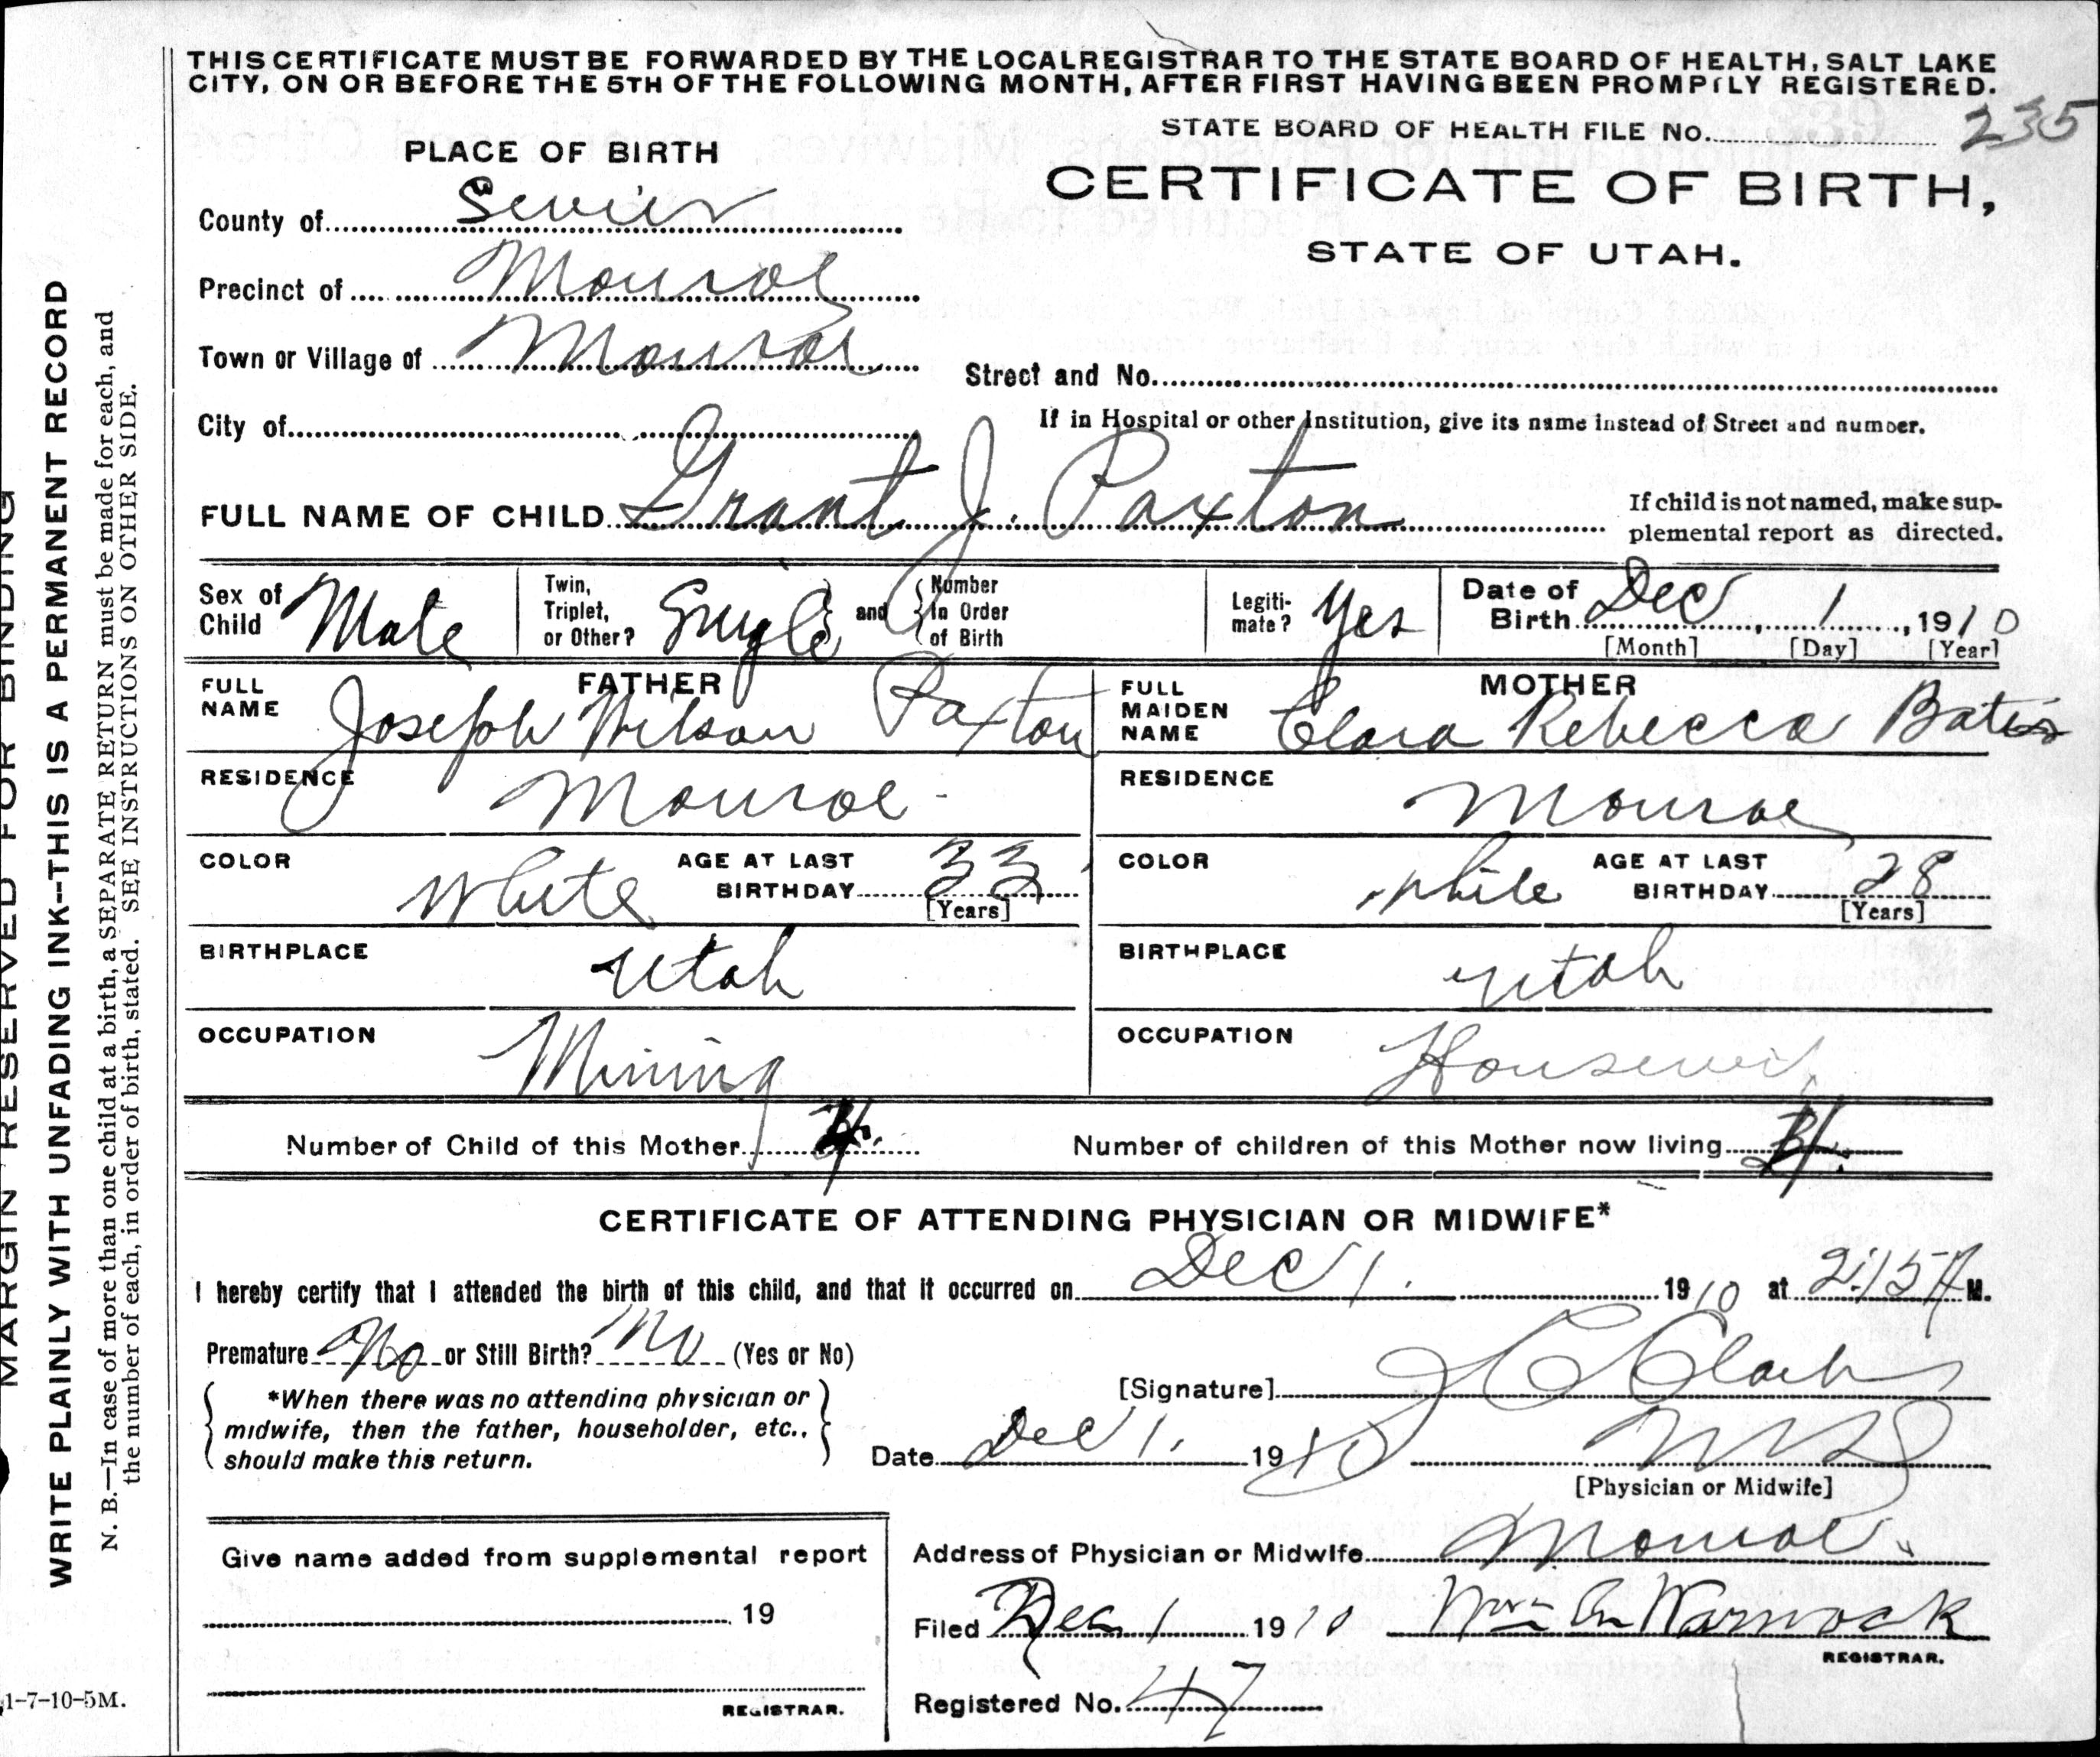 THIS CERTIFICATE MUST BE FORWARDED BY THE LOCAL REGISTRAR TO THE STATE BOARD OF HEALTH, SALT LAKE
CITY, ON OR BEFORE THE 5TH OF THE FOLLOWING MONTH, AFTER FIRST HAVING BEEN PROMPTLY REGISTERED.
STATE BOARD OF HEALTH FILE No. 235
PLACE OF BIRTH
CERTIFICATE OF BIRTH,
STATE OF UTAH.
County of Sevier
Precinct of Monroe
Town or Village of Monroe
Street and No.
City of
If in Hospital or other Institution, give its name instead of Street and number.
FULL NAME OF CHILD Grant J. Paxton
If child is not named, make sup-
plemental report as directed.
Sex of Child Male
Twin, Triplet, or Other? Single and Number In Order of Birth
Legiti-mate? Yes
Date of Birth Dec, 1, 1910
[Month] [Day] [Year]
FATHER
FULL NAME Joseph Wilson Paxton
MOTHER
FULL MAIDEN NAME Clara Rebecca Bates
RESIDENCE Monroe
RESIDENCE Monroe
COLOR White AGE AT LAST BIRTHDAY 33 [Years]
COLOR White AGE AT LAST BIRTHDAY 28 [Years]
BIRTHPLACE Utah
BIRTHPLACE Utah
OCCUPATION Mining
OCCUPATION Housewife
Number of Child of this Mother 4.
Number of children of this Mother now living 4.
CERTIFICATE OF ATTENDING PHYSICIAN OR MIDWIFE*
I hereby certify that I attended the birth of this child, and that it occurred on Dec 1. 1910 at 2:15 A M.
Premature No or Still Birth? No (Yes or No)
*When there was no attending physician or
midwife, then the father, householder, etc.,
should make this return.
[Signature] Clark
Date Dec 1. 1910 MD
[Physician or Midwife]
Give name added from supplemental report
19
REGISTRAR.
Address of Physician or Midwife Monroe.
Filed Dec 1 1910 Wm Warnock
REGISTRAR.
Registered No. 47
MARGIN RESERVED FOR BINDING
WRITE PLAINLY WITH UNFADING INK—THIS IS A PERMANENT RECORD
N. B.—In case of more than one child at a birth, a SEPARATE RETURN must be made for each, and
the number of each, in order of birth, stated. SEE INSTRUCTIONS ON OTHER SIDE.
1-7-10-5M.